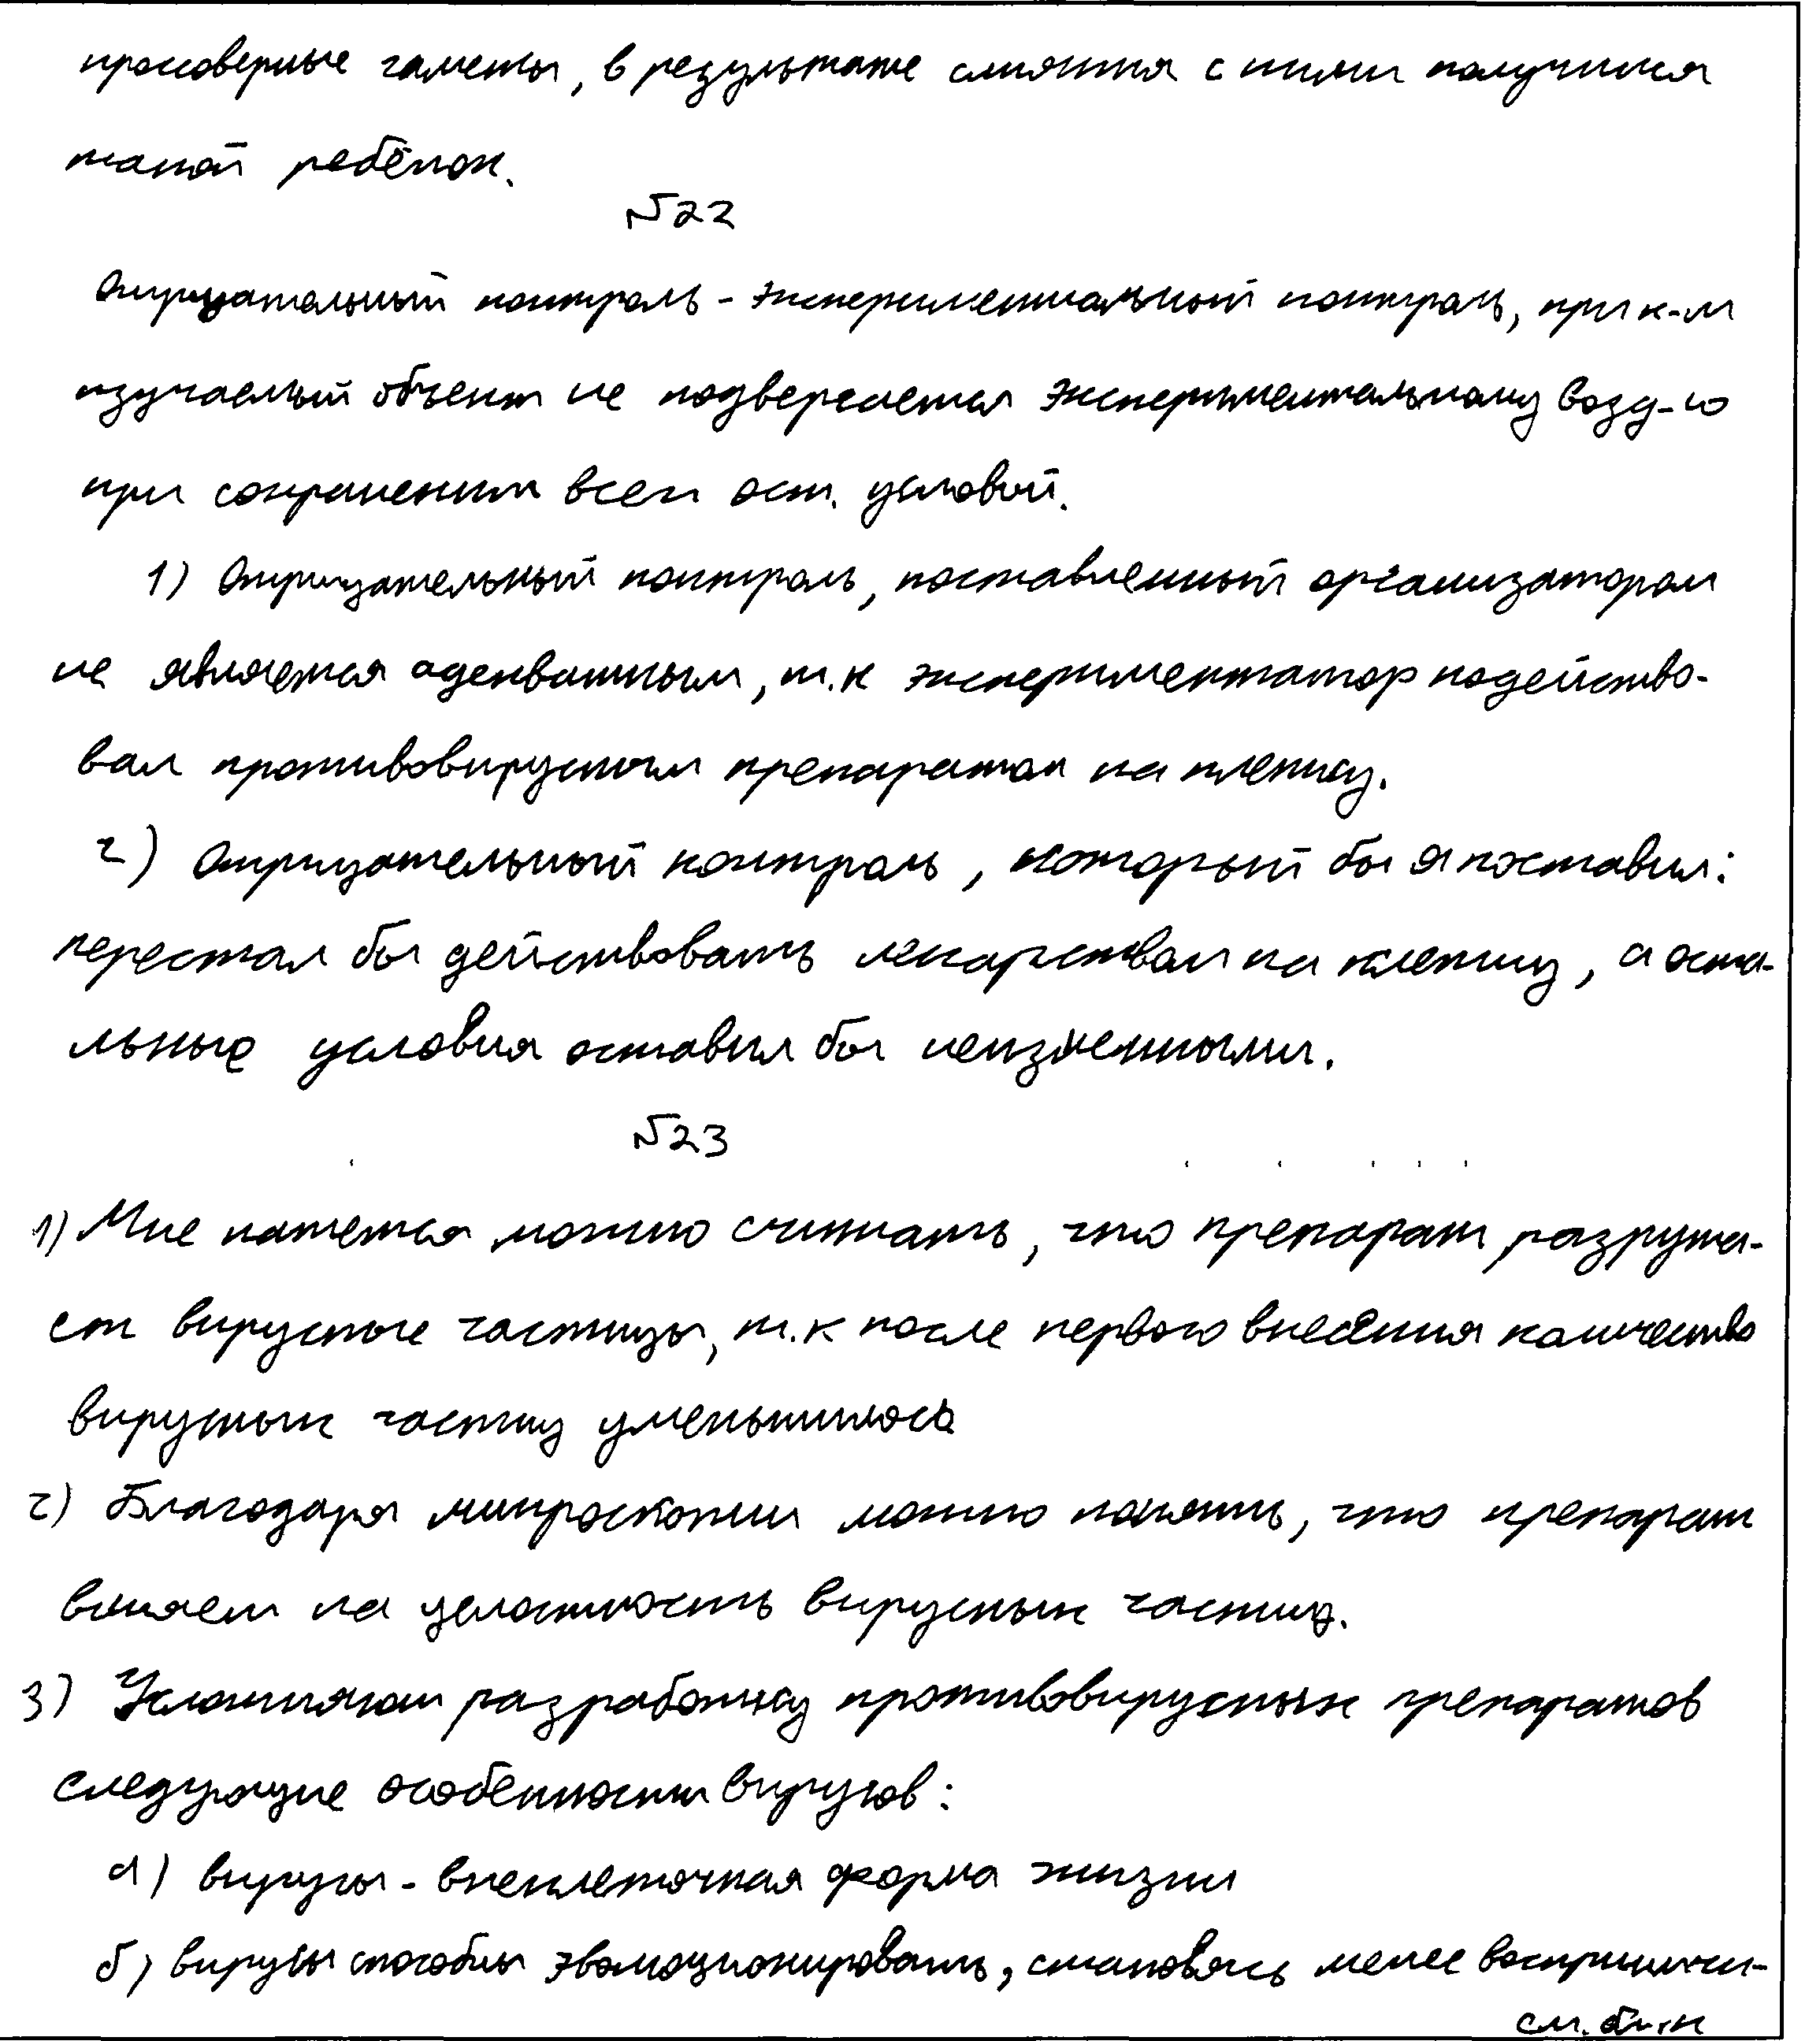 кроссоверные гаметы, в результате слияния с ними получился
такой ребёнок.
№22
Отрицательный контроль - экспериментальный контроль, при к-м
изучаемый объект не подвергается экспериментальному возд-ю
при сохранении всех ост. условий.
1) Отрицательный контроль, поставленный организатором
не является адекватным, т.к экспериментатор подейство-
вал противовирусным препаратом на клетку.
2) Отрицательный контроль, который бы я поставил:
перестал бы действовать лекарством на клетку, а оста-
льные условия оставил бы неизменными.
№23
1) Мне кажется можно считать, что препарат разруша-
ет вирусные частицы, т.к после первого внесения количество
вирусных частиц уменьшилось
2) Благодаря микроскопии можно понять, что препарат
влияет на целостность вирусных частиц.
3) Усложняют разработку противовирусных препаратов
следующие особенности вирусов:
а) вирусы - внеклеточная форма жизни
б) вирусы способны эволюционировать, становясь менее восприимчи-
см. бланк